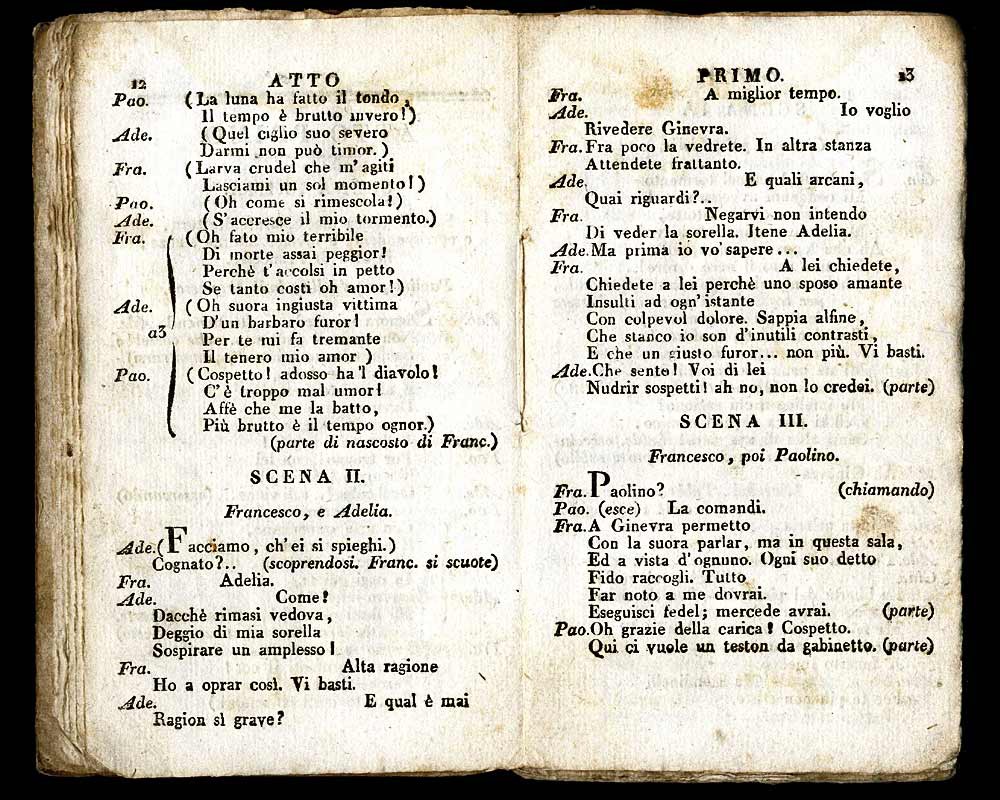 12 ATTO
Pao. (La luna ha fatto il tondo,
Il tempo è brutto invero!)
Ade. (Quel ciglio suo severo
Darmi non può timor.)
Fra. (Larva crudel che m'agiti
Lasciami un sol momento!)
Pao. (Oh come si rimescola!)
Ade. (S'accresce il mio tormento.)
Fra. (Oh fato mio terribile
Di morte assai peggior!
Perchè t'accolsi in petto
Se tanto costi oh amor!)
Ade. (Oh suora ingiusta vittima
D'un barbaro furor!
a3 Per te mi fa tremante
Il tenero mio amor )
Pao. (Cospetto! adosso ha'l diavolo!
C'è troppo mal umor!
Affè che me la batto,
Più brutto è il tempo ognor.)
(parte di nascosto di Franc.)
SCENA II.
Francesco, e Adelia.
Ade.(Facciamo, ch'ei si spieghi.)
Cognato?.. (scoprendosi. Franc. si scuote)
Fra. Adelia.
Ade. Come!
Dacchè rimasi vedova,
Deggio di mia sorella
Sospirare un amplesso!
Fra. Alta ragione
Ho a oprar così. Vi basti.
Ade. E qual è mai
Ragion sì grave?
PRIMO. 13
Fra. A miglior tempo.
Ade. Io voglio
Rivedere Ginevra.
Fra.Fra poco la vedrete. In altra stanza
Attendete frattanto.
Ade. E quali arcani,
Quai riguardi?..
Fra. Negarvi non intendo
Di veder la sorella. Itene Adelia.
Ade.Ma prima io vo' sapere...
Fra. A lei chiedete,
Chiedete a lei perchè uno sposo amante
Insulti ad ogn'istante
Con colpevol dolore. Sappia alfine,
Che stanco io son d'inutili contrasti,
E che un giusto furor... non più. Vi basti.
Ade.Che sento! Voi di lei
Nudrir sospetti! ah no, non lo credei. (parte)
SCENA III.
Francesco, poi Paolino.
Fra.Paolino? (chiamando)
Pao. (esce) La comandi.
Fra.A Ginevra permetto
Con la suora parlar, ma in questa sala,
Ed a vista d'ognuno. Ogni suo detto
Fido raccogli. Tutto
Far noto a me dovrai.
Eseguisci fedel; mercede avrai. (parte)
Pao.Oh grazie della carica! Cospetto.
Qui ci vuole un teston da gabinetto. (parte)